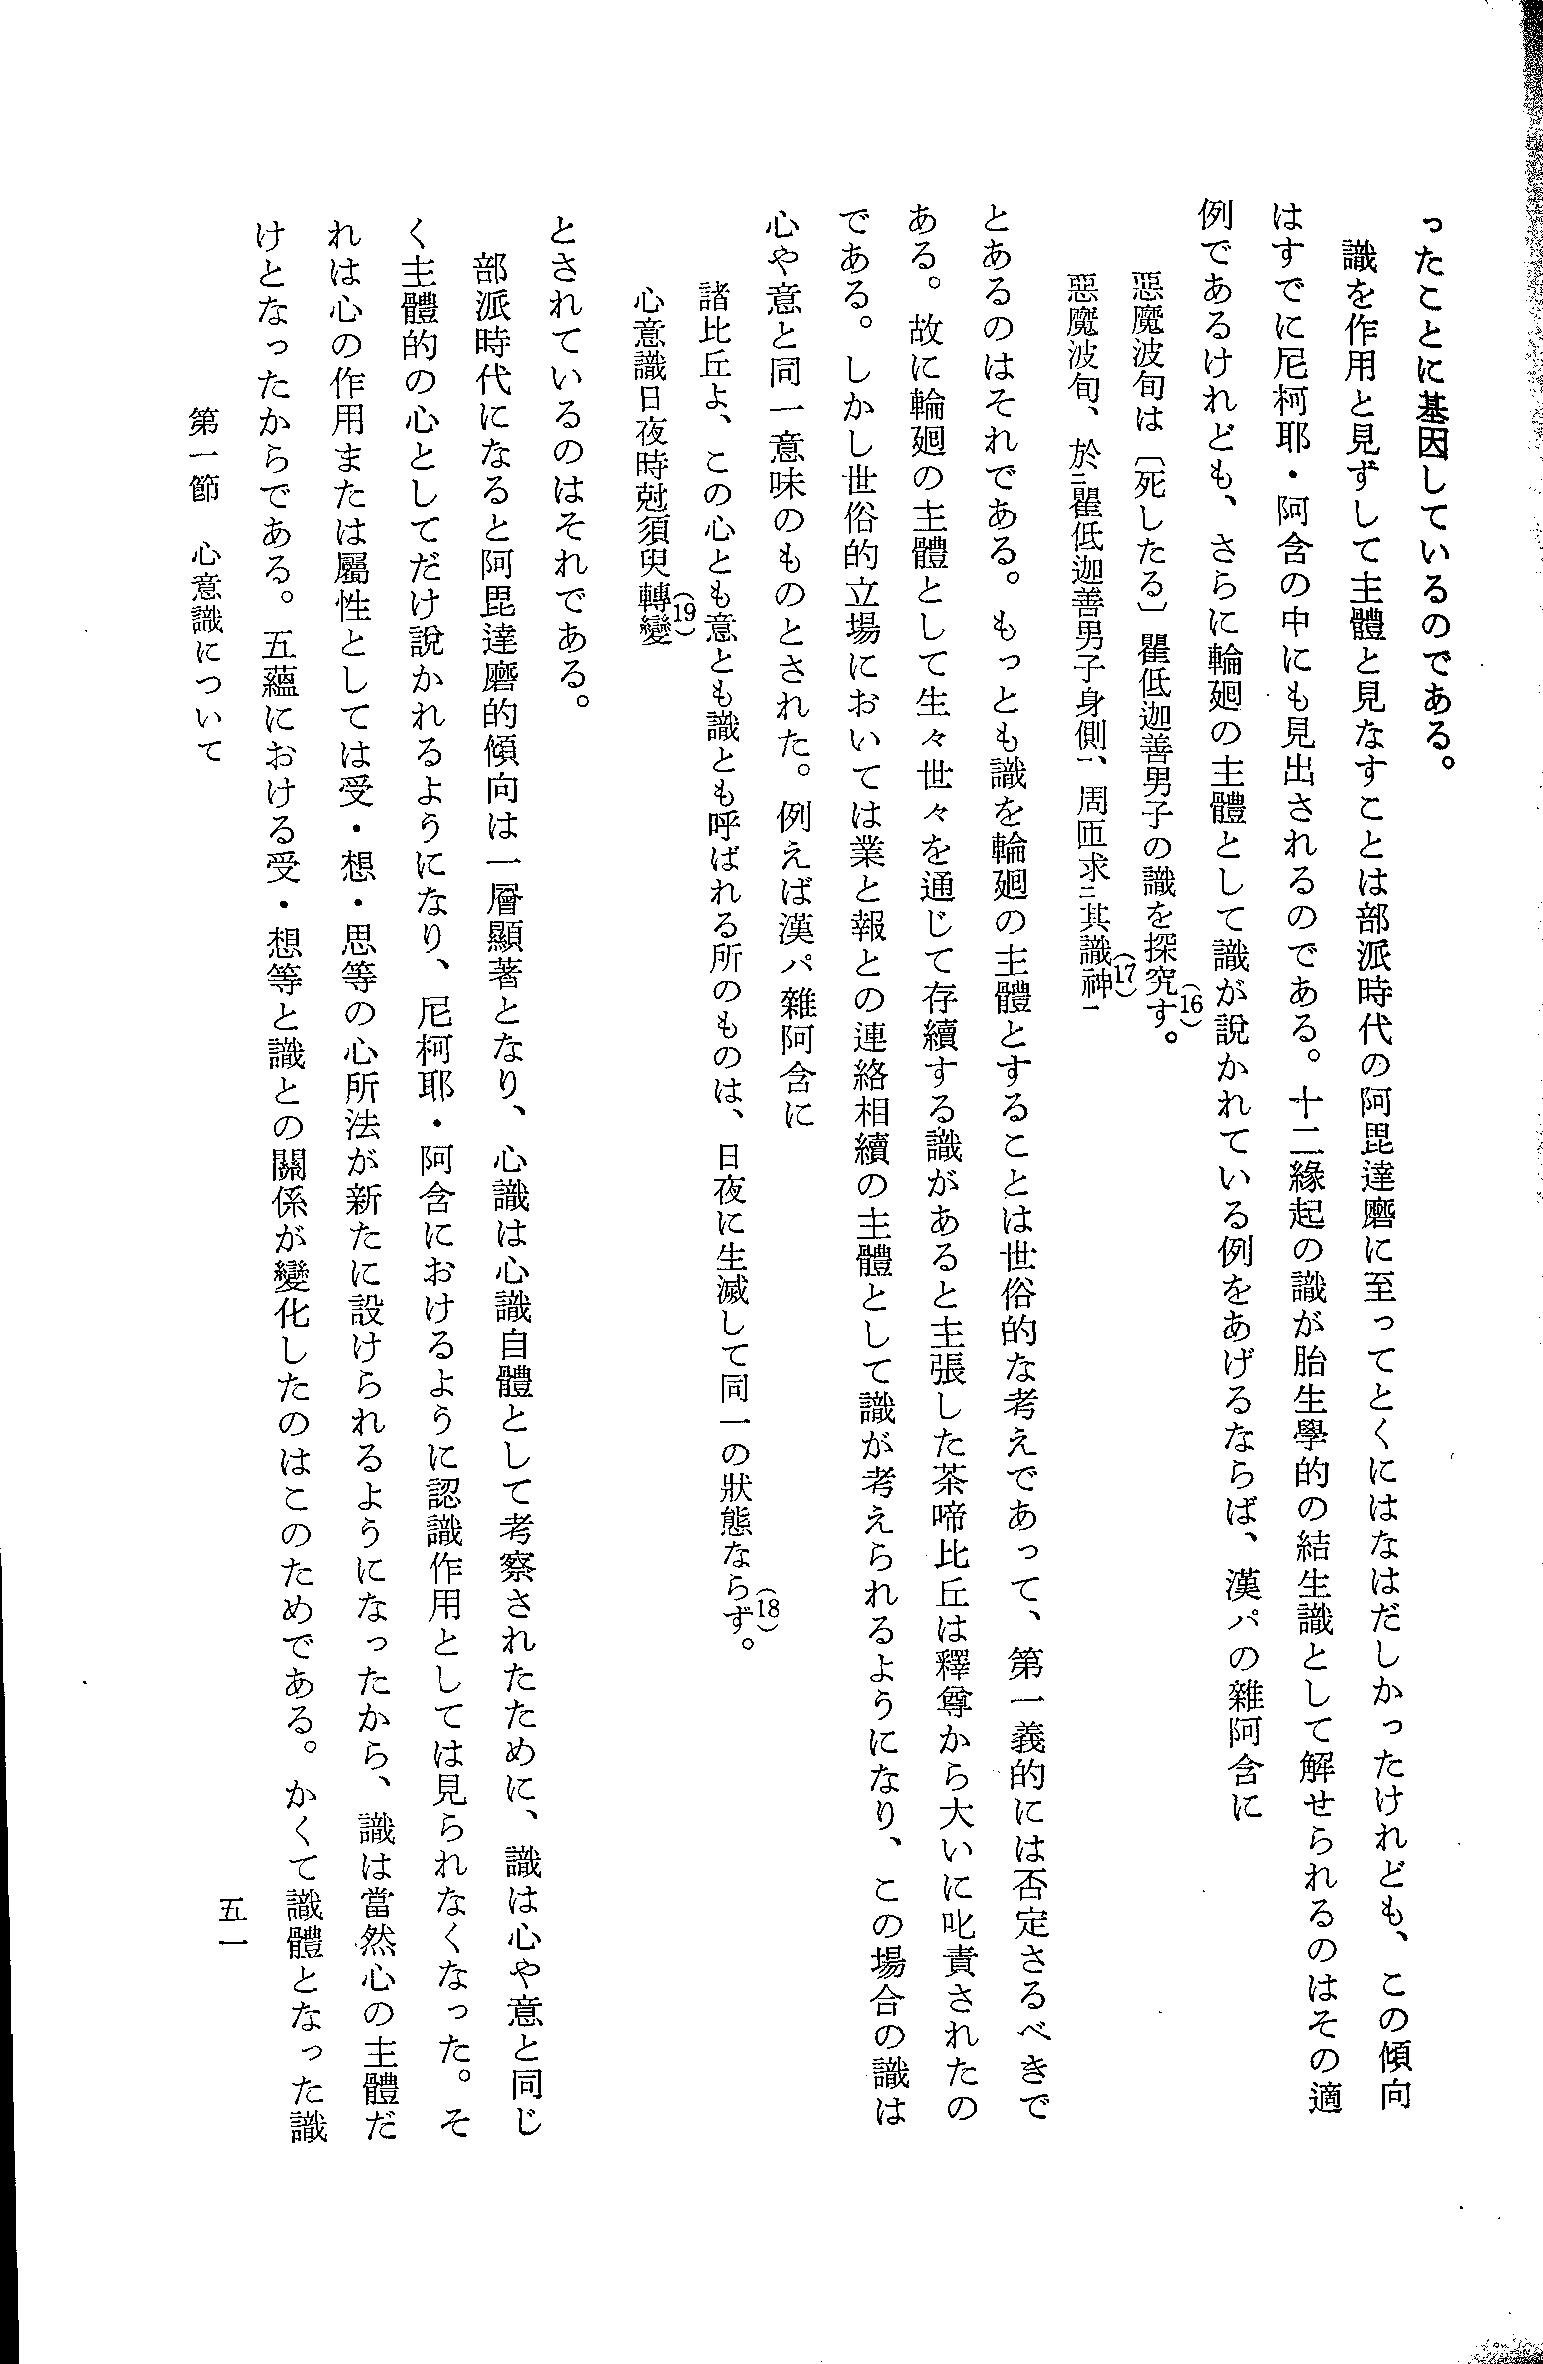 ったことに基因しているのである。
識を作用と見ずして主體と見なすことは部派時代の阿毘達磨に至ってとくにはなはだしかったけれども、この傾向
はすでに尼柯耶・阿含の中にも見出されるのである。十二緣起の識が胎生學的の結生識として解せられるのはその適
例であるけれども、さらに輪廻の主體として識が說かれている例をあげるならば、漢パの雜阿含に
惡魔波旬は〔死したる〕瞿低迦善男子の識を探究す。(16)
惡魔波旬、於㆓瞿低迦善男子身側㆒、周匝求㆓其識神㆒(17)
とあるのはそれである。もっとも識を輪廻の主體とすることは世俗的な考えであって、第一義的には否定さるべきで
ある。故に輪廻の主體として生々世々を通じて存續する識があると主張した茶啼比丘は釋尊から大いに叱責されたの
である。しかし世俗的立場においては業と報との連絡相續の主體として識が考えられるようになり、この場合の識は
心や意と同一意味のものとされた。例えば漢パ雜阿含に
諸比丘よ、この心とも意とも識とも呼ばれる所のものは、日夜に生滅して同一の狀態ならず。(18)
心意識日夜時尅須臾轉變(19)
とされているのはそれである。
部派時代になると阿毘達磨的傾向は一層顯著となり、心識は心識自體として考察されたために、識は心や意と同じ
く主體的の心としてだけ說かれるようになり、尼柯耶・阿含におけるように認識作用としては見られなくなった。そ
れは心の作用または屬性としては受・想・思等の心所法が新たに設けられるようになったから、識は當然心の主體だ
けとなったからである。五蘊における受・想等と識との關係が變化したのはこのためである。かくて識體となった識
第一節　心意識について
五一